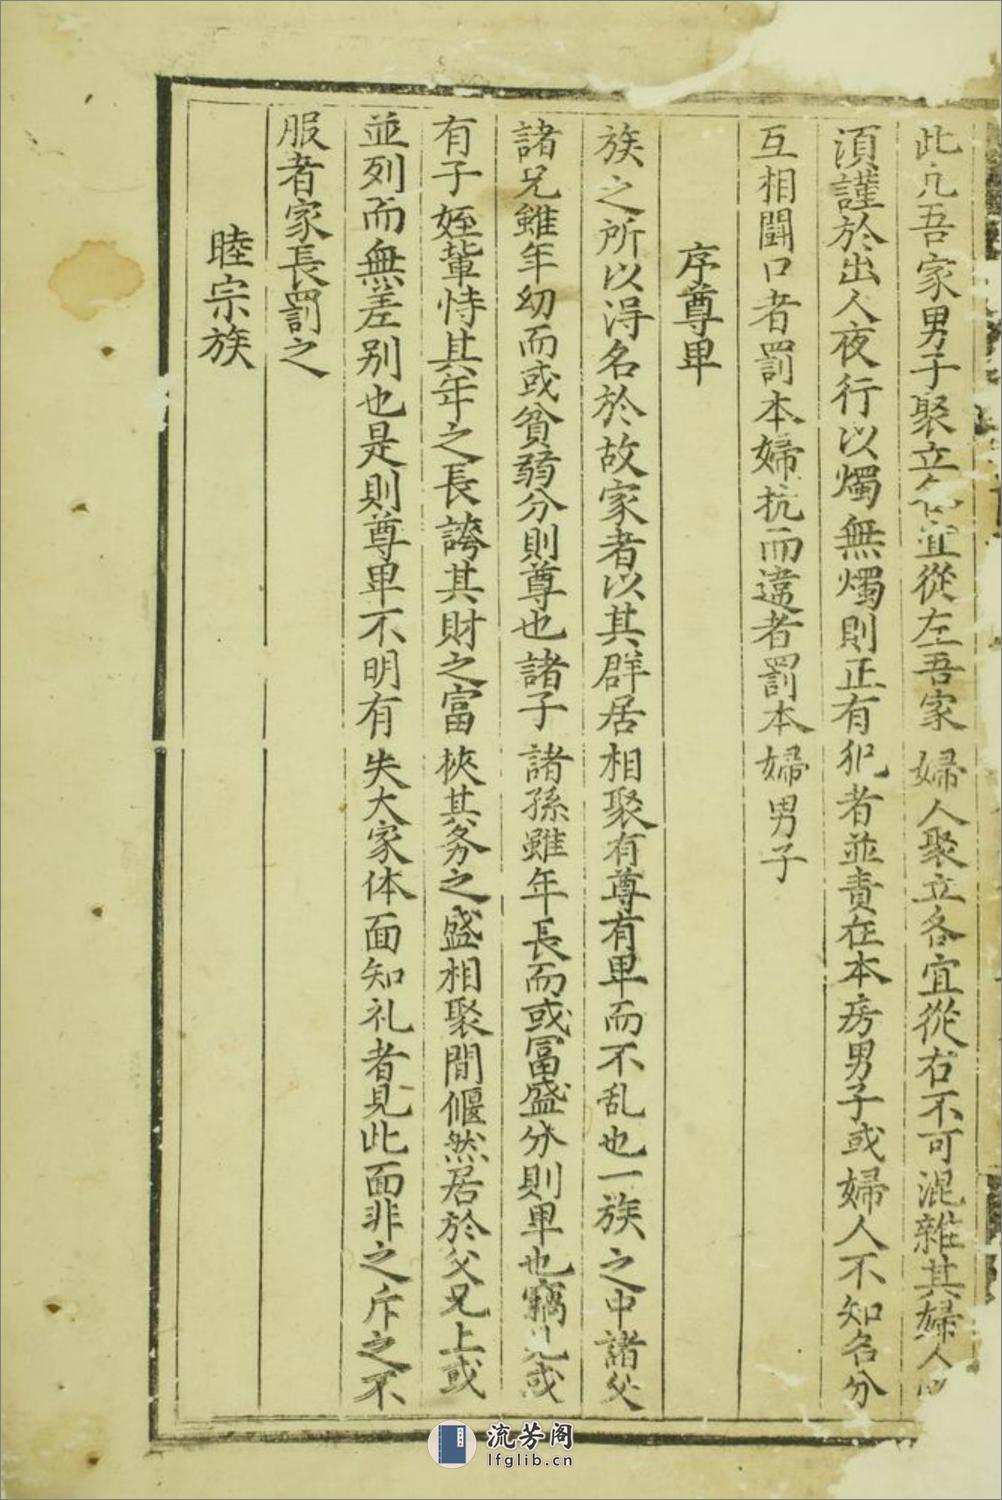 此凢吾家男子聚立各宜從左吾家婦人聚立各宜從右不可混雜其婦人
湏謹於出入夜行以燭無燭則正有犯者並責在本房男子或婦人不知名分
互相鬪口者罰本婦抗而違者罰本婦男子
序尊卑
族之所以淂名於故家者以其群居相聚有尊有卑而不乱也一族之中諸父
諸兄雖年幼而或貧弱分則尊也諸子諸孫雖年長而或冨盛分則卑也竊見或
有子姪輩恃其年之長誇其財之富挾其势之盛相聚間偃然居於父兄上或
並列而無差别也是則尊卑不明有失大家体面知礼者見此面非之斥之不
服者家長罰之
睦宗族
流芳阁
lfglib.cn